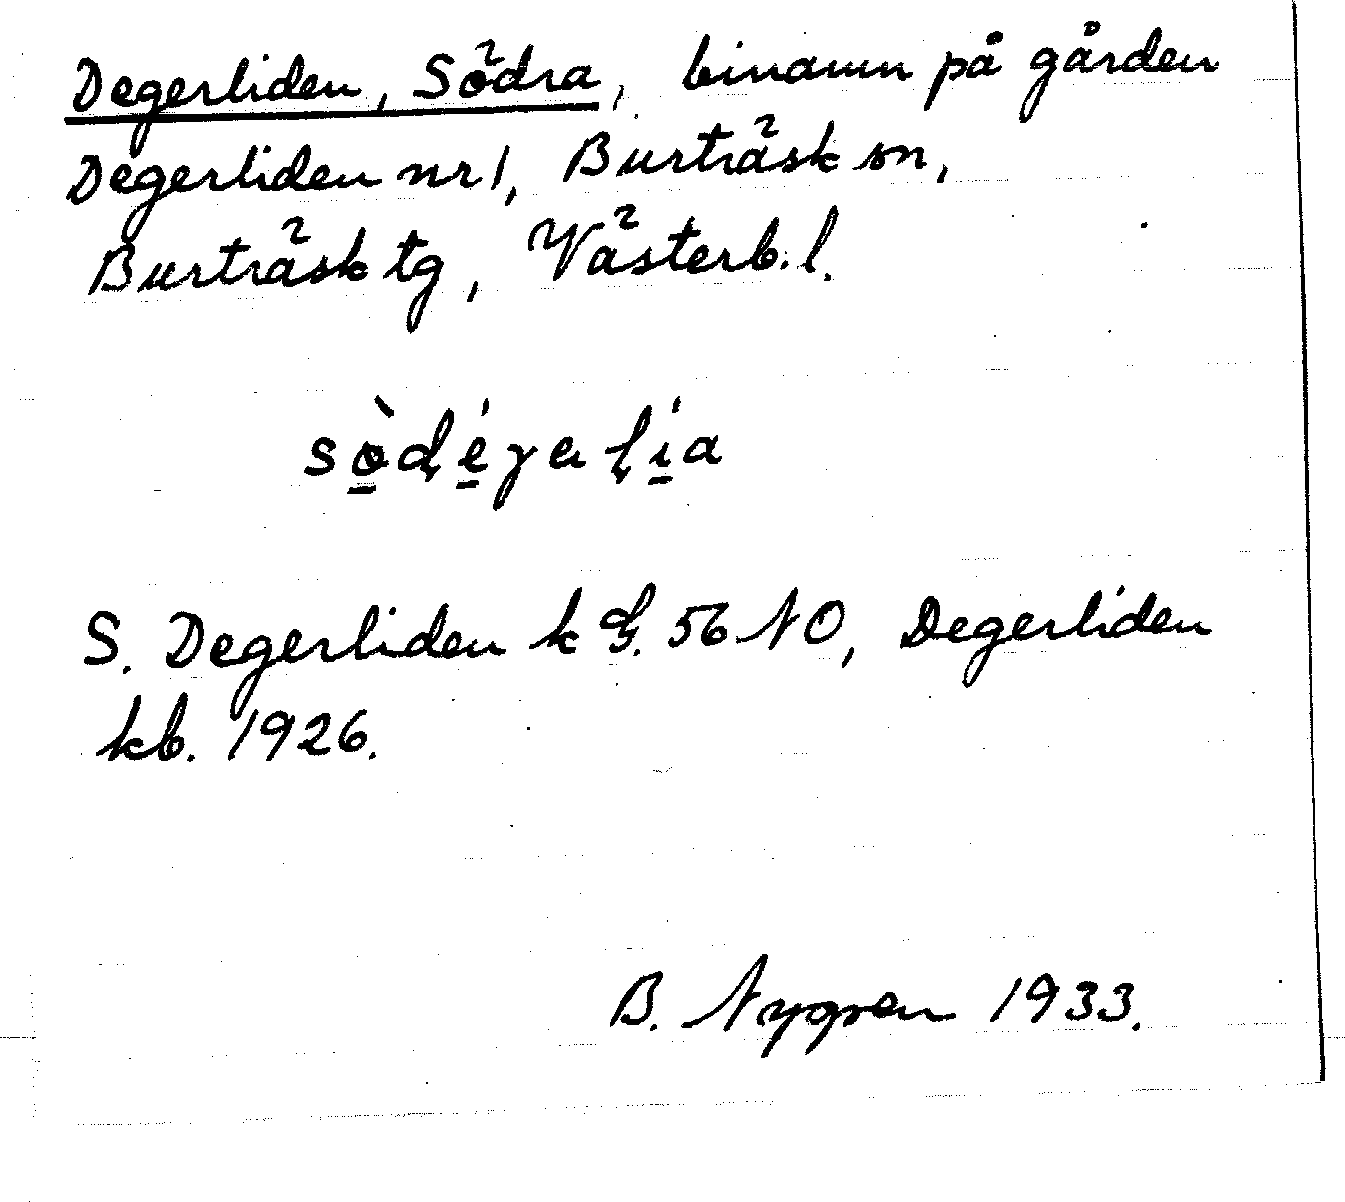 Degerliden, Södra, binamn på gården
Degerliden nr 1, Burträsk sn,
Burträsk tg, Västerb. l.
S. Degerliden k G. 56 NO, Degerliden
kb. 1926.
B. Nygren 1933.